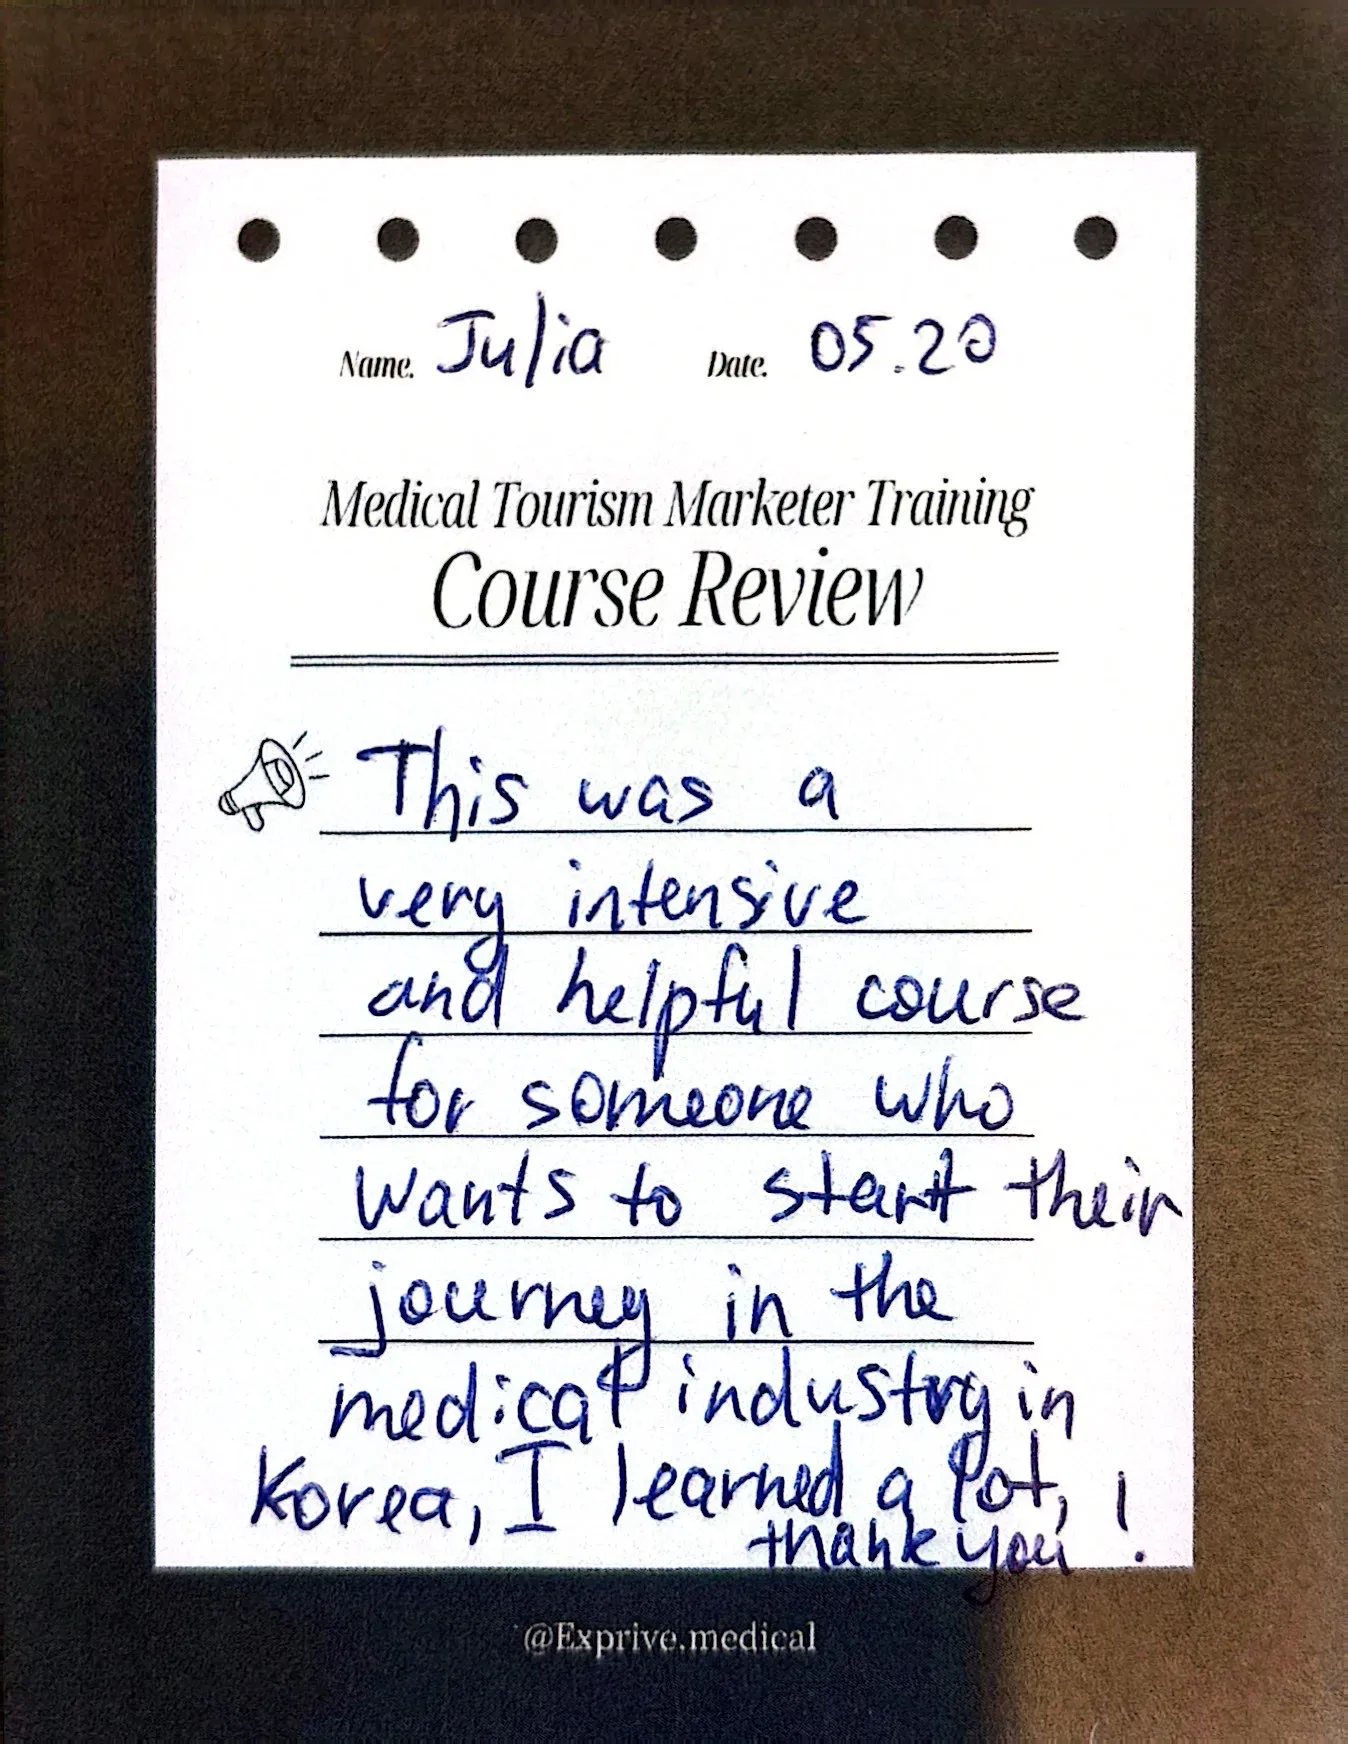 Name. Julia Date. 05.20
Medical Tourism Marketer Training
Course Review
This was a
very intensive
and helpful course
for someone who
wants to start their
journey in the
medical industry in
Korea, I learned a lot,
thank you!
@Exprive.medical